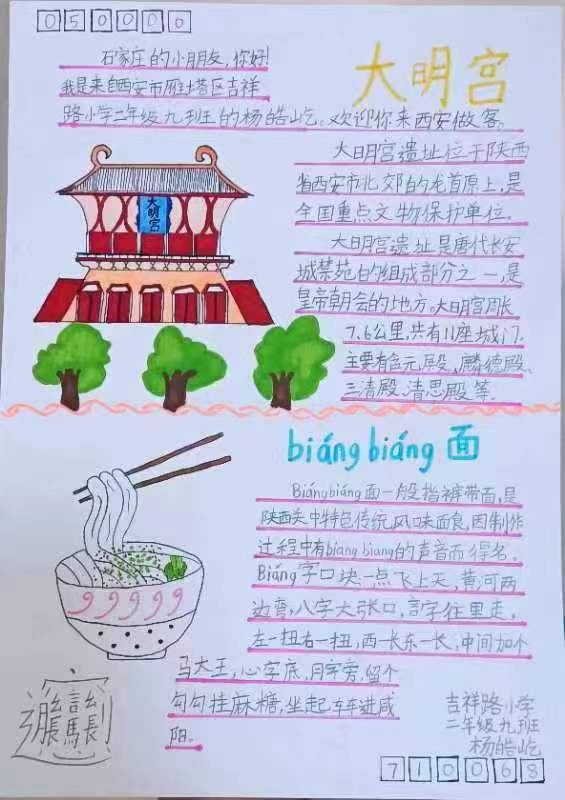 050000
石家庄的小朋友，你好！
我是来自西安市雁塔区吉祥
路小学二年级九班的杨皓屹。欢迎你来西安做客。
大明宫
大明宫遗址位于陕西
省西安市北郊的龙首原上，是
全国重点文物保护单位。
大明宫遗址是唐代长安
城禁苑的组成部分之一，是
皇帝朝会的地方。大明宫周长
7.6公里，共有11座城门.
主要有含元殿、麟德殿、
三清殿、清思殿等.
大明宫
biángbiáng面
Biángbiáng面一般指裤带面，是
陕西关中特色传统风味面食，因制作
过程中有biang biang的声音而得名。
Biáng字口诀一点飞上天，黄河两
边弯，八字大张口，言字往里走，
左一扭右一扭，西一长东一长，中间加个
马大王，心字底，月字旁，留个
勾勾挂麻糖，坐起车车进咸
阳。
吉祥路小学
二年级九班
杨皓屹
710068